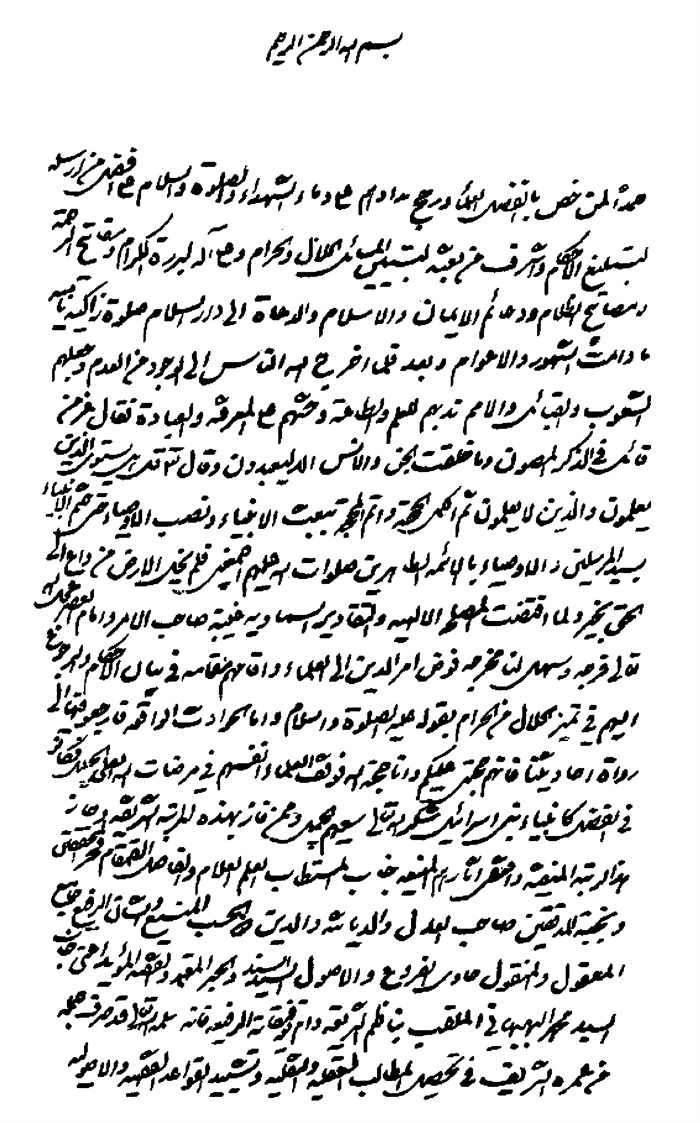 بسم الله الرحمن الرحیم
حمداً لمن خص بالفضل العلماء ورجح مدادهم على دماء الشهداء والصلوة والسلام على افضل من ارسله
لتبليغ الأحكام واشرف من بعثه لتبيين المسائل الحلال والحرام وعلى آله البررة الكرام مفاتيح الرحمة
ومصابيح الظلام ودعائم الايمان والاسلام والدعاة الى دار السلام صلوة زاكية نامية
ما دامت الشهور والاعوام وبعد فلما اخرج الله الناس الى الوجود من العدم وجعلهم
الشعوب والقبائل والامم ندبهم للعلم والطاعة وحثهم على المعرفة والعبادة فقال عز من
قائل في الذكر المصون وما خلقت الجن والانس الا ليعبدون وقال هل يستوى الذين
يعلمون والذين لا يعلمون ثم اكمل الحجة واتم المحجة ببعث الانبياء ونصب الاوصياء حتى ختم الأنبياء
بسيد المرسلين والاوصياء بالائمة الطاهرين صلوات الله عليهم اجمعين فلم يخل الارض من داع الى
الحق بخير ولما اقتضت المصلح الالهية والتقادير السماوية غيبة صاحب الامر وامام العصر عجل الله
تعالى فرجه وسهل لنا مخرجه فوض امر الدين الى العلماء واقامهم مقامه في بيان الأحكام والرجوع
اليهم في تميز الحلال من الحرام بقوله عليه الصلوة والسلام واما الحوادث الواقعة فارجعوا فيها الى
رواة احاديثنا فانهم حجتى عليكم وانا حجة الله فوقف العلماء انفسهم في مرضات الله العلى الجليل فكانوا
في الفضل كانبياء بنى اسرائيل شكر الله تعالى سعيهم الجميل وممن فاز بهذه المرتبة الشريفة وحاز
هذا الرتبة المنيعة واقتفى آثارهم المنيعة جناب المستطاب العلم العلام والفاضل القمقام فخر المحققين
ونخبة المدققين صاحب العدل والديانة والدين والحسب المنيع والشان الرفيع جامع
المعقول والمنقول حاوى الفروع والاصول السيد السند والحبر المعتمد والثقة المؤيد اعنى جناب
السيد محمد البهبهانى الملقب بناظم الشريعة دام توفيقاته الرفيعة فانه سلمه الله تعالى قد صرف جملة
من عمره الشريف في تحصيل المطالب العقلية والنقلية وتشييد القواعد الفقهية والاصولية